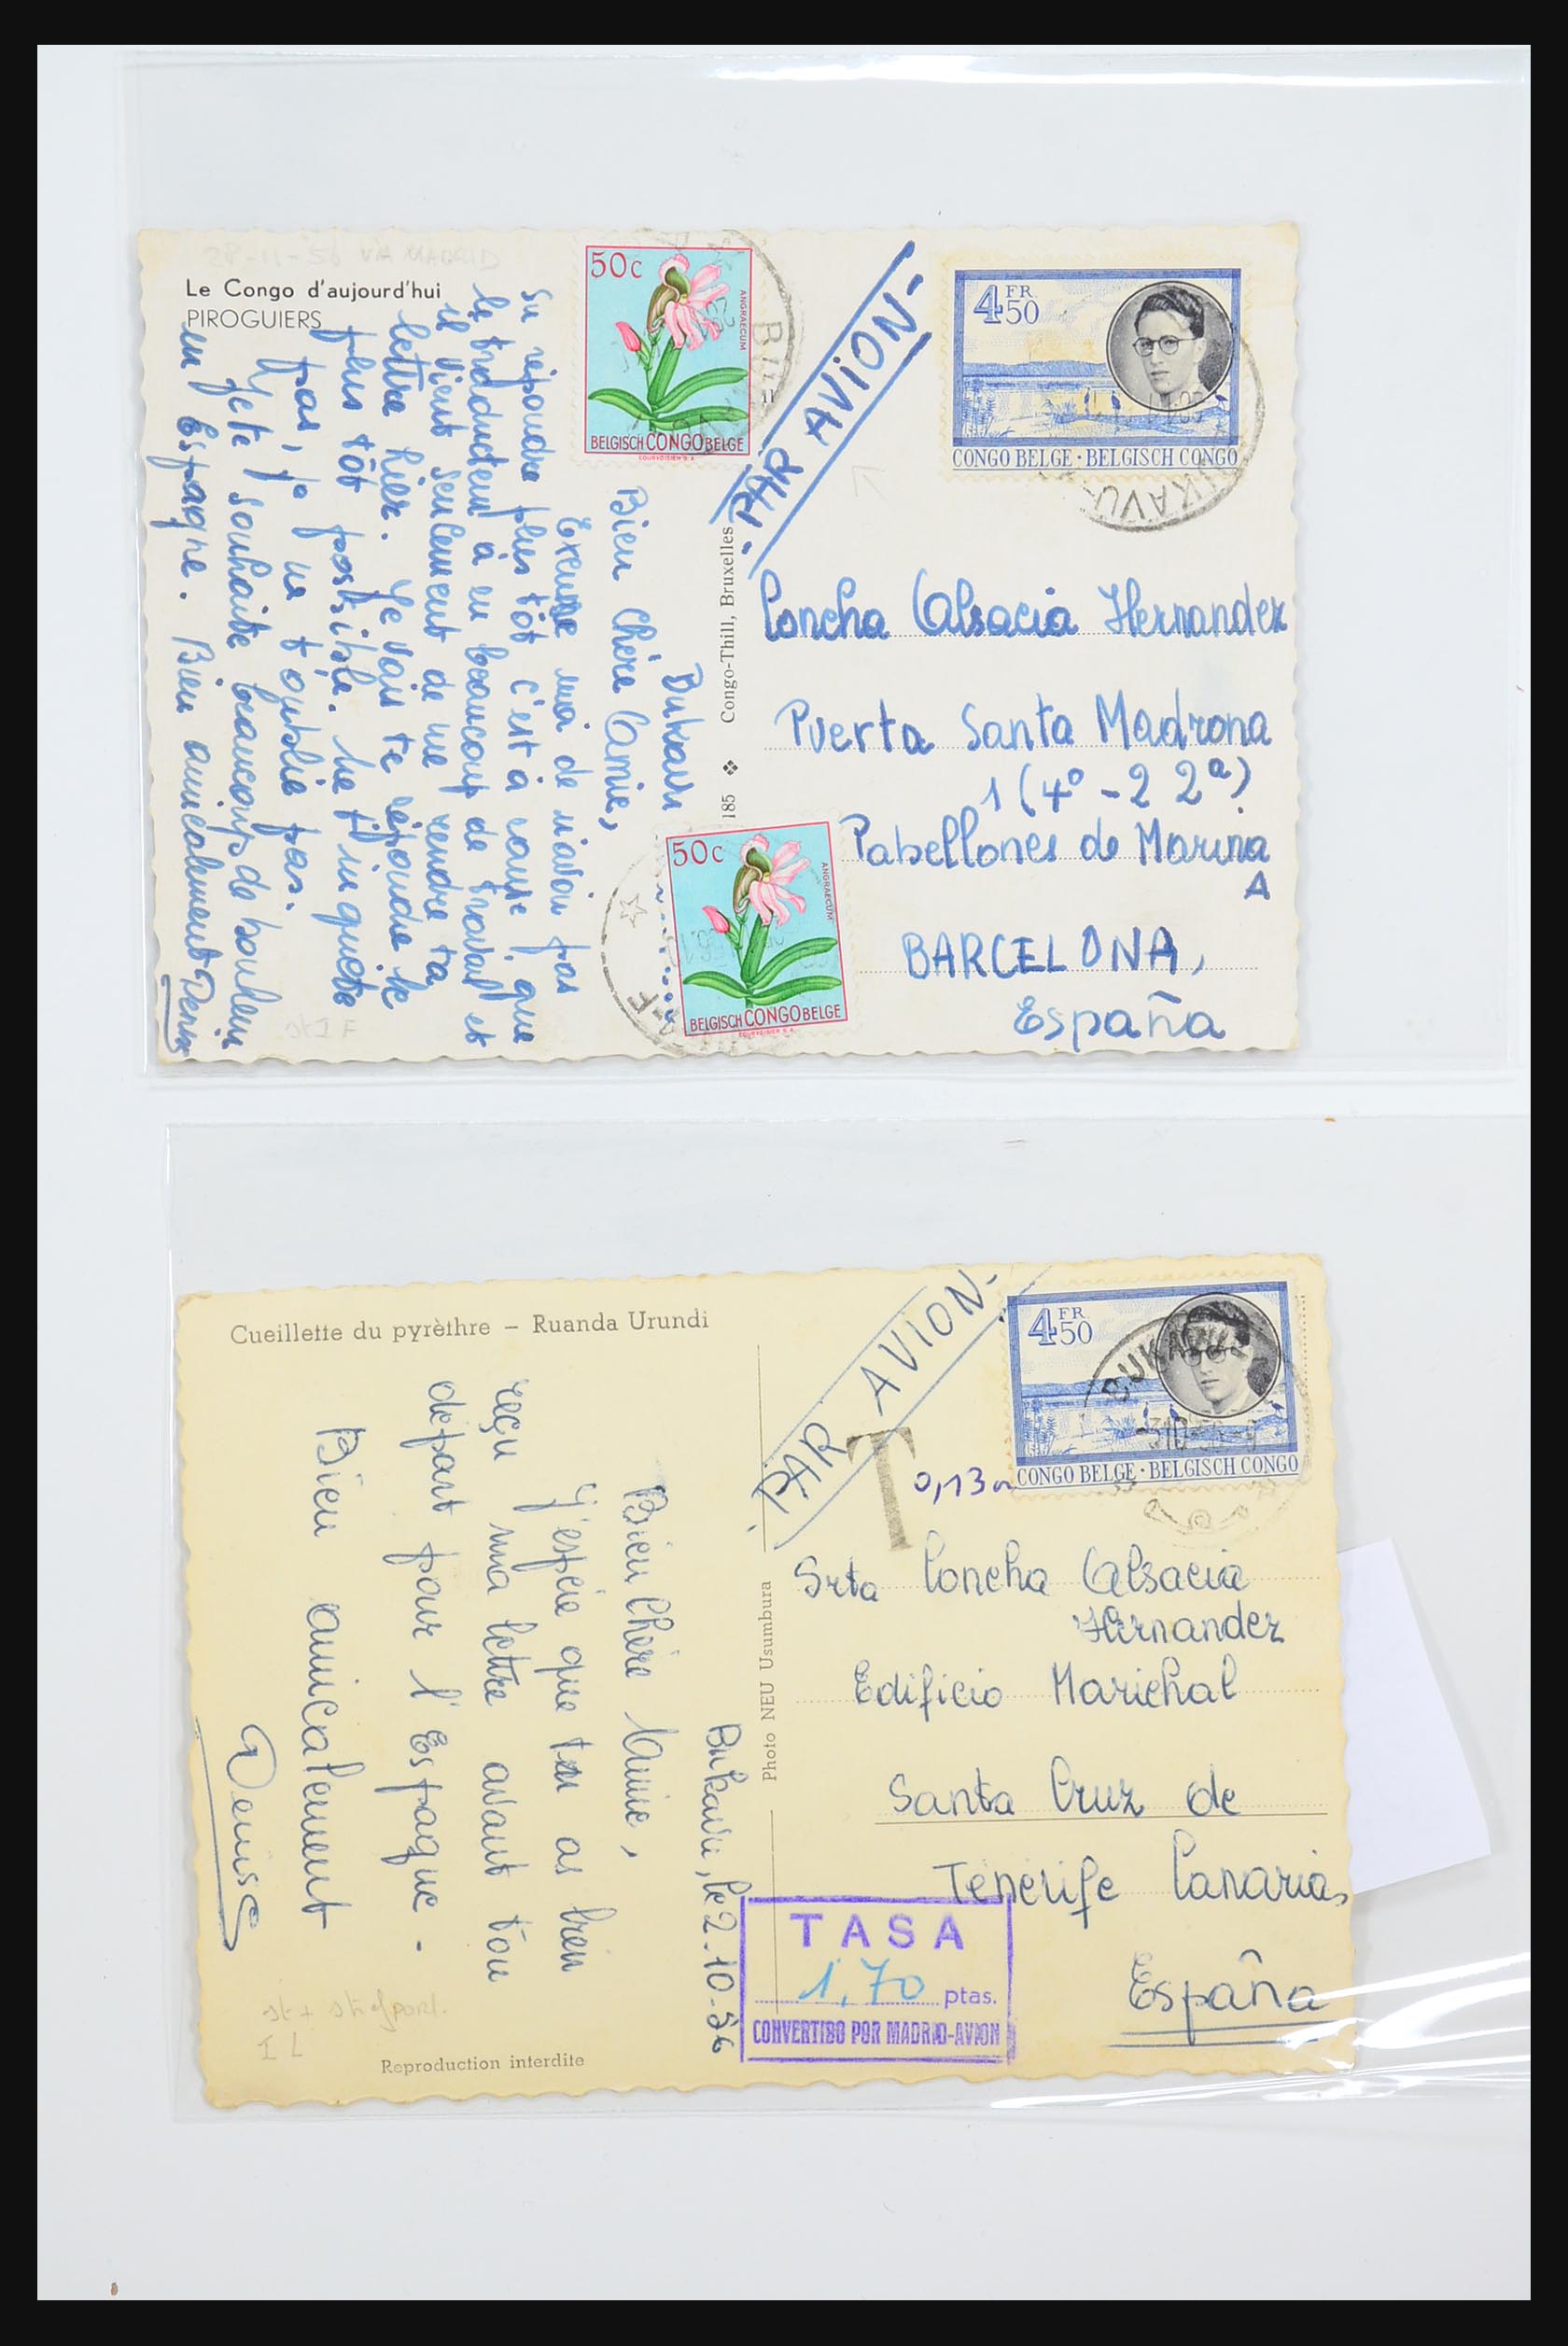 28-11-56 VIA MADRID
Le Congo d'aujourd'hui
PIROGUIERS
50c
ANGRAECUM
BELGISCH CONGO BELGE
COURVOISIER S.A.
- PAR AVION -
4 FR 50
CONGO BELGE · BELGISCH CONGO
BUKAVU
Bukavu
Bien Chère Amie,
Excuse moi de n'avoir pas
su répondre plus tôt c'est à cause que
le traducteur à eu beaucoup de travail et
il vient seulement de me rendre ta
lettre hier. Je vais te répondre le
plus tôt possible. Ne t'inquiète
pas, je ne t'oublie pas.
Je te souhaite beaucoup de bonheur
en Espagne. Bien amicalement Denise
185 ❖ Congo-Thill, Bruxelles
Concha Alsacia Hernandez
Puerta Santa Madrona
1 (4º - 2 2ª)
Pabellones de Marina
A
BARCELONA,
España
50c
ANGRAECUM
BELGISCH CONGO BELGE
COURVOISIER S.A.
st I F
Cueillette du pyrèthre – Ruanda Urundi
- PAR AVION -
T
0,13
4 FR 50
CONGO BELGE · BELGISCH CONGO
BUKAVU
Bukavu, le 2-10-56
Bien Chère Amie,
J'espère que tu as bien
reçu ma lettre avant ton
départ pour l'Espagne.
Bien amicalement
Denise
Photo NEU Usumbura
Srta Concha Alsacia
Hernandez
Edificio Marichal
Santa Cruz de
Tenerife Canarias
España
TASA
1,70 ptas.
CONVERTIDO POR MADRID-AVION
I L
Reproduction interdite